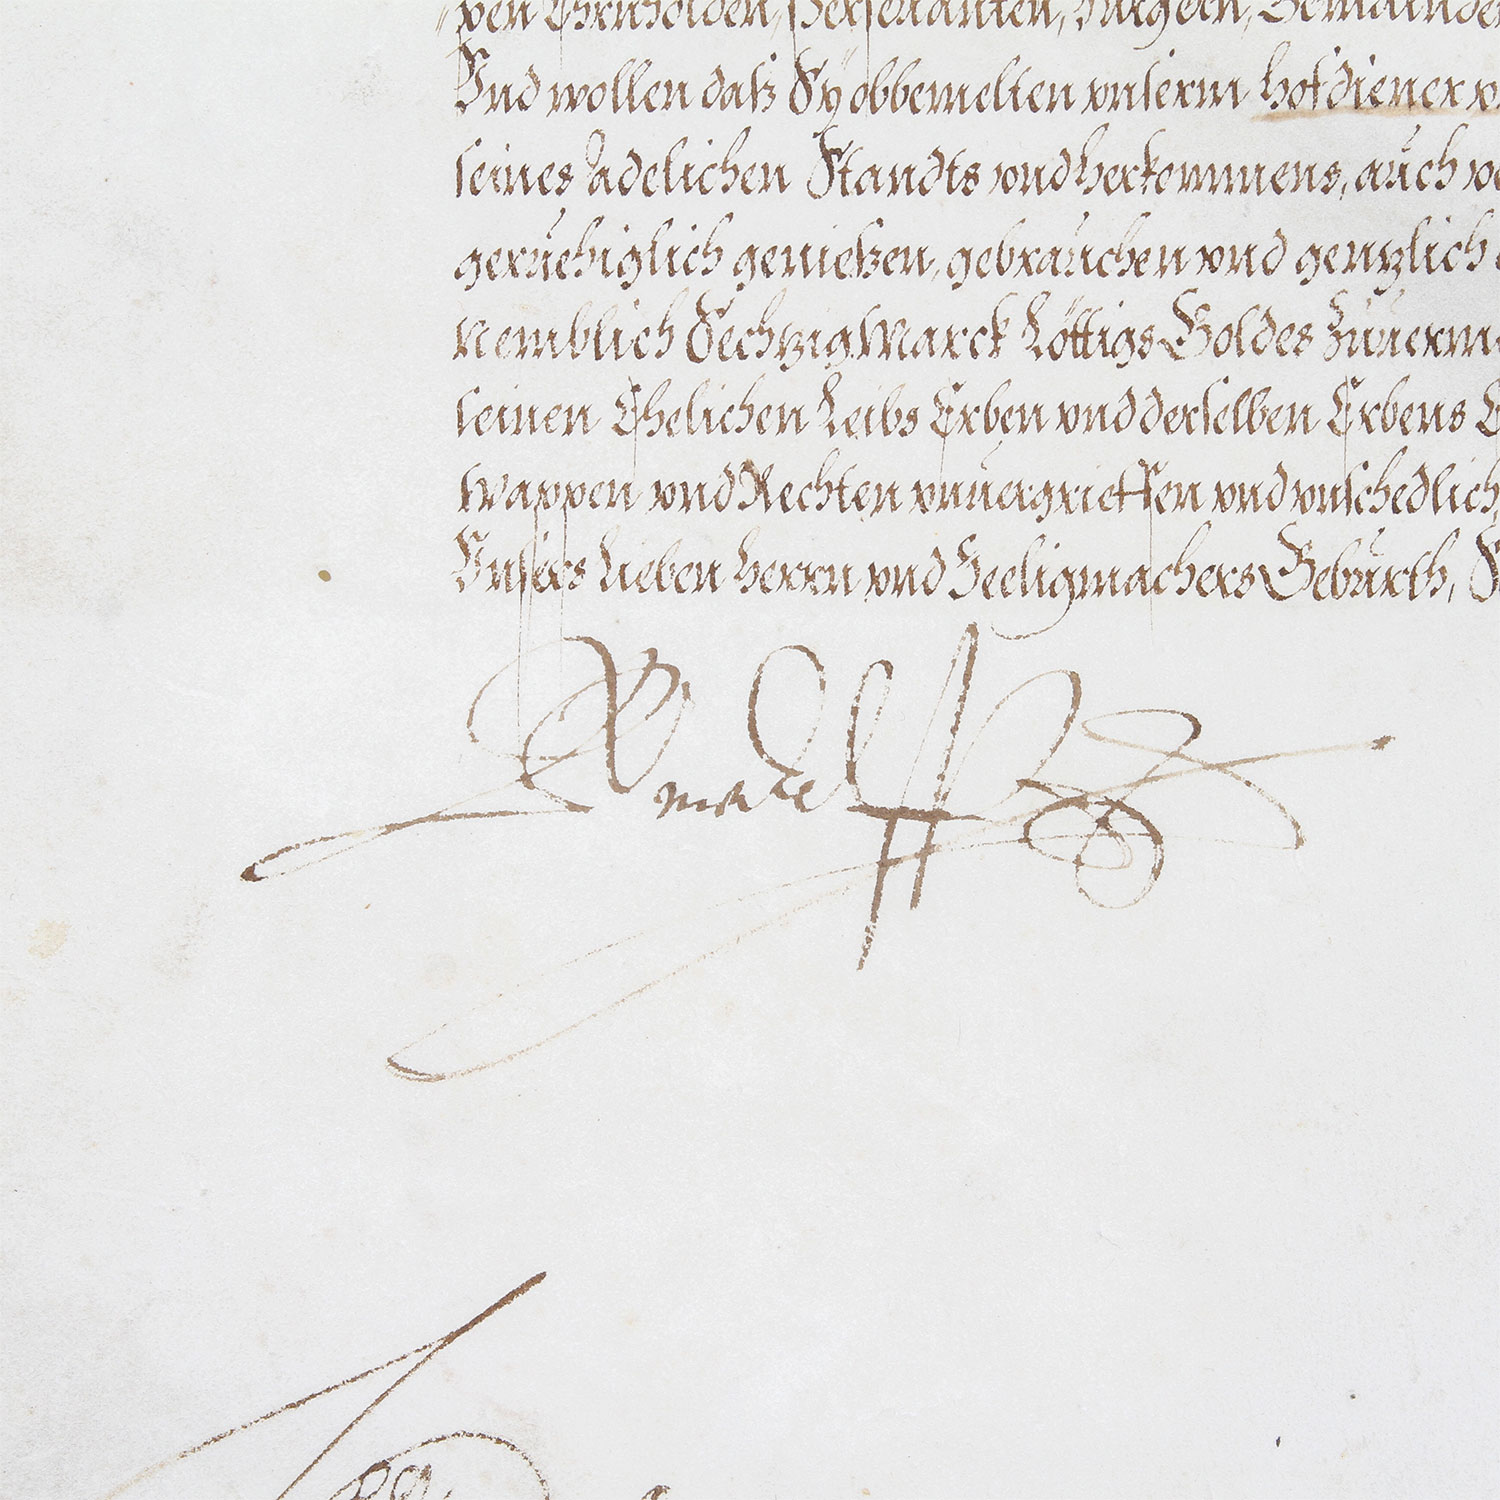 pen Ehrnholden, Persevanten, Burgern, Gemainde
Und wollen daß Sy obbemelten unserm hofdiener v
seines Adelichen Standts und herkommens, auch vo
geruehiglich genießen, gebrauchen und gentzlich
Nemblich Sechtzig Marck Löttigs Goldes Zuuerm
seinen Ehelichen Leibs Erben und derselben Erbens E
Wappen und Rechten unuergrieffen und unschedlich,
Unsers Lieben Herrn und Seeligmachers Geburth,
Rudolff